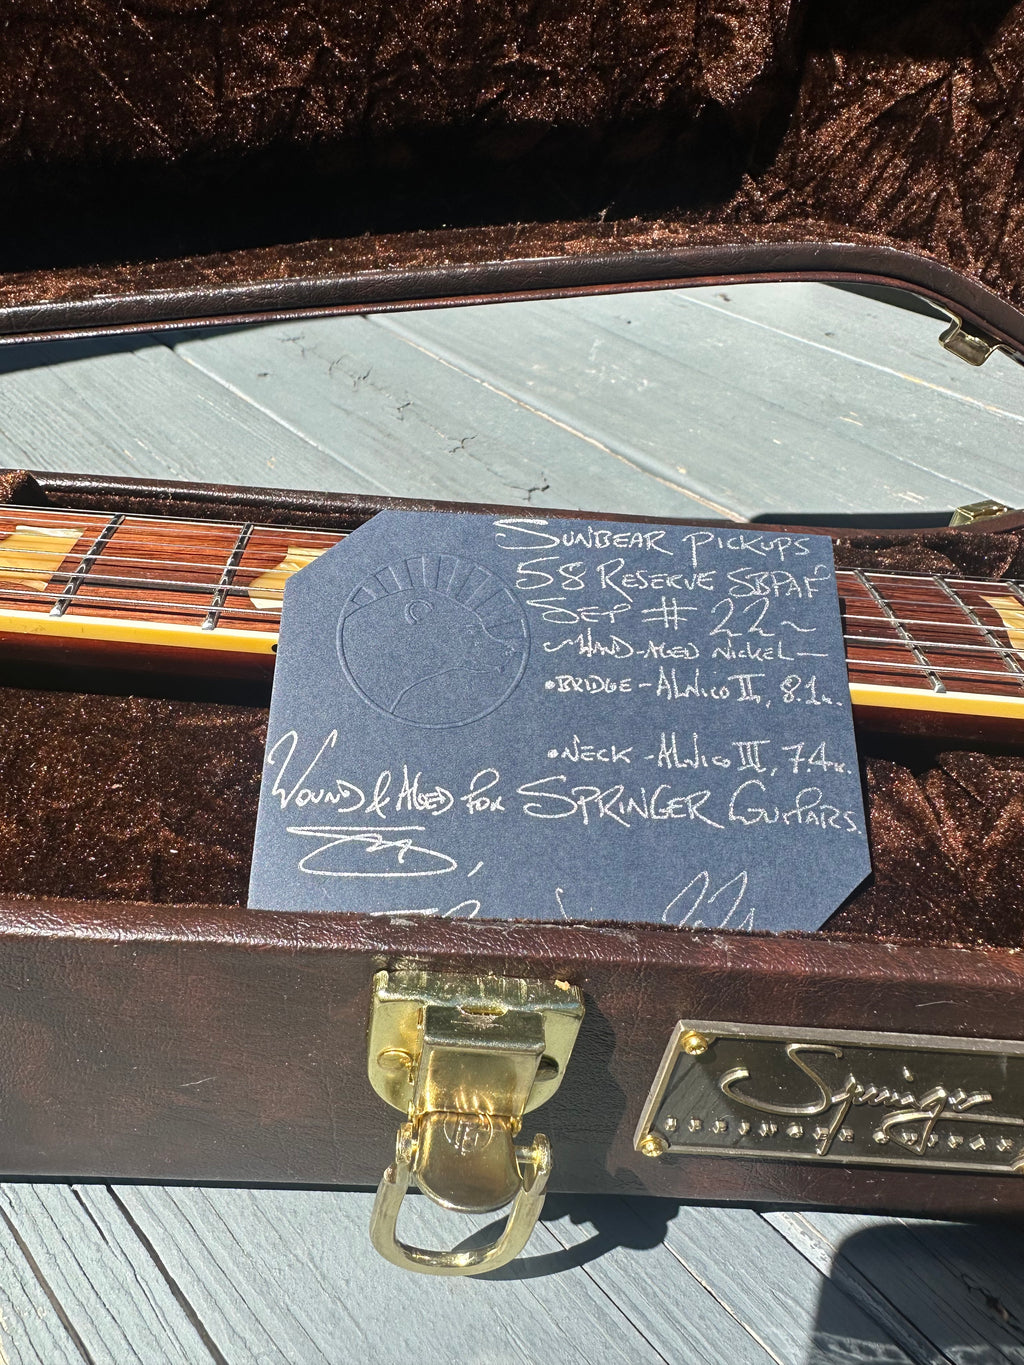 SUNBEAR PICKUPS
58 RESERVE SBPAF
SET # 22~
~HAND-AGED NICKEL—
•BRIDGE-ALNICO II, 8.1K.
•NECK-ALNICO III, 7.4K.
WOUND & AGED FOR SPRINGER GUITARS.
Springer